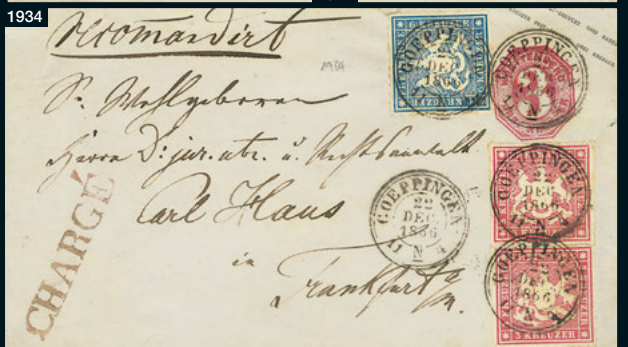 1934
recomandirt
1934
Sr. Wohlgeboren
Herrn Dr. jur. utr. u. Rechtsanwalt
Carl Haus
in
Frankfurt a/M.
CHARGÉ
GOEPPINGEN
22
DEC
1866
N
GOEPPINGEN
22
DEC
1866
N
GOEPPINGEN
22
DEC
1866
N
GOEPPINGEN
22
DEC
1866
N
GOEPPINGEN
DEC
1866
3 KREUZER